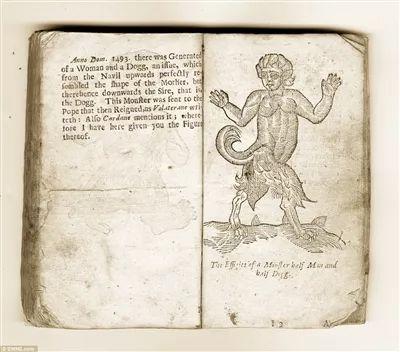 Anno Dom. 1493. there was Generated
of a Woman and a Dogg, an issue, which
from the Navil upwards perfectly re-
sembled the shape of the Mother, but
therehence downwards the Sire, that is
the Dogg. This Monster was sent to the
Pope that then Reigned, as Volaterane wri-
teth: Also Cardane mentions it; where-
fore I have here given you the Figure
thereof.
The Effigies of a Monster half Man and
half Dogg.
I 2
© SWNS.com